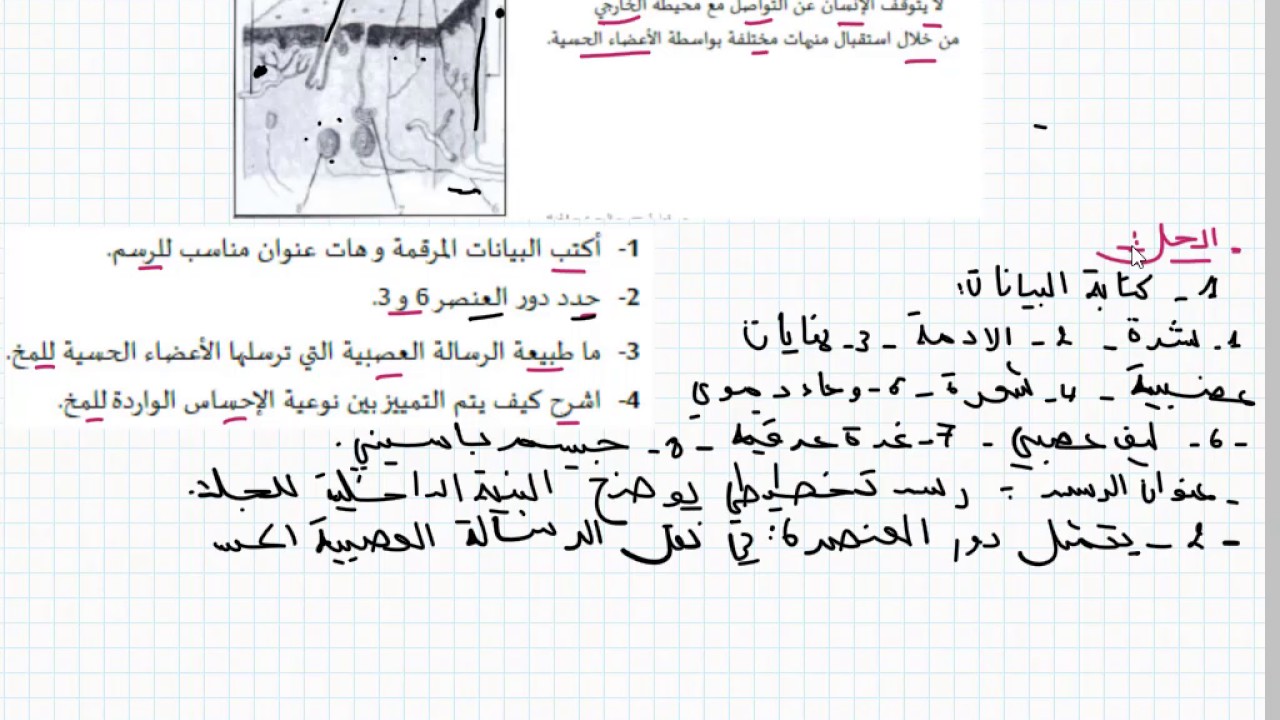 لا يتوقف الإنسان عن التواصل مع محيطه الخارجي
من خلال استقبال منبهات مختلفة بواسطة الأعضاء الحسية.
8 7 6
1- أكتب البيانات المرقمة و هات عنوان مناسب للرسم.
2- حدد دور العنصر 6 و 3.
3- ما طبيعة الرسالة العصبية التي ترسلها الأعضاء الحسية للمخ.
4- اشرح كيف يتم التمييز بين نوعية الإحساس الواردة للمخ.
الحل:
1- كتابة البيانات:
1. بشرة - 2- الادمة - 3- نهايات
عصبية - 4- شعرة - 5- وعاء دموي
-6- ليف عصبي - 7- غدة عرقية - 8- جسيم باسيني.
- عنوان الرسم: رسم تخطيطي يوضح البنية الداخلية للجلد.
- 2- يتمثل دور العنصر 6: في نقل الرسالة العصبية الحس